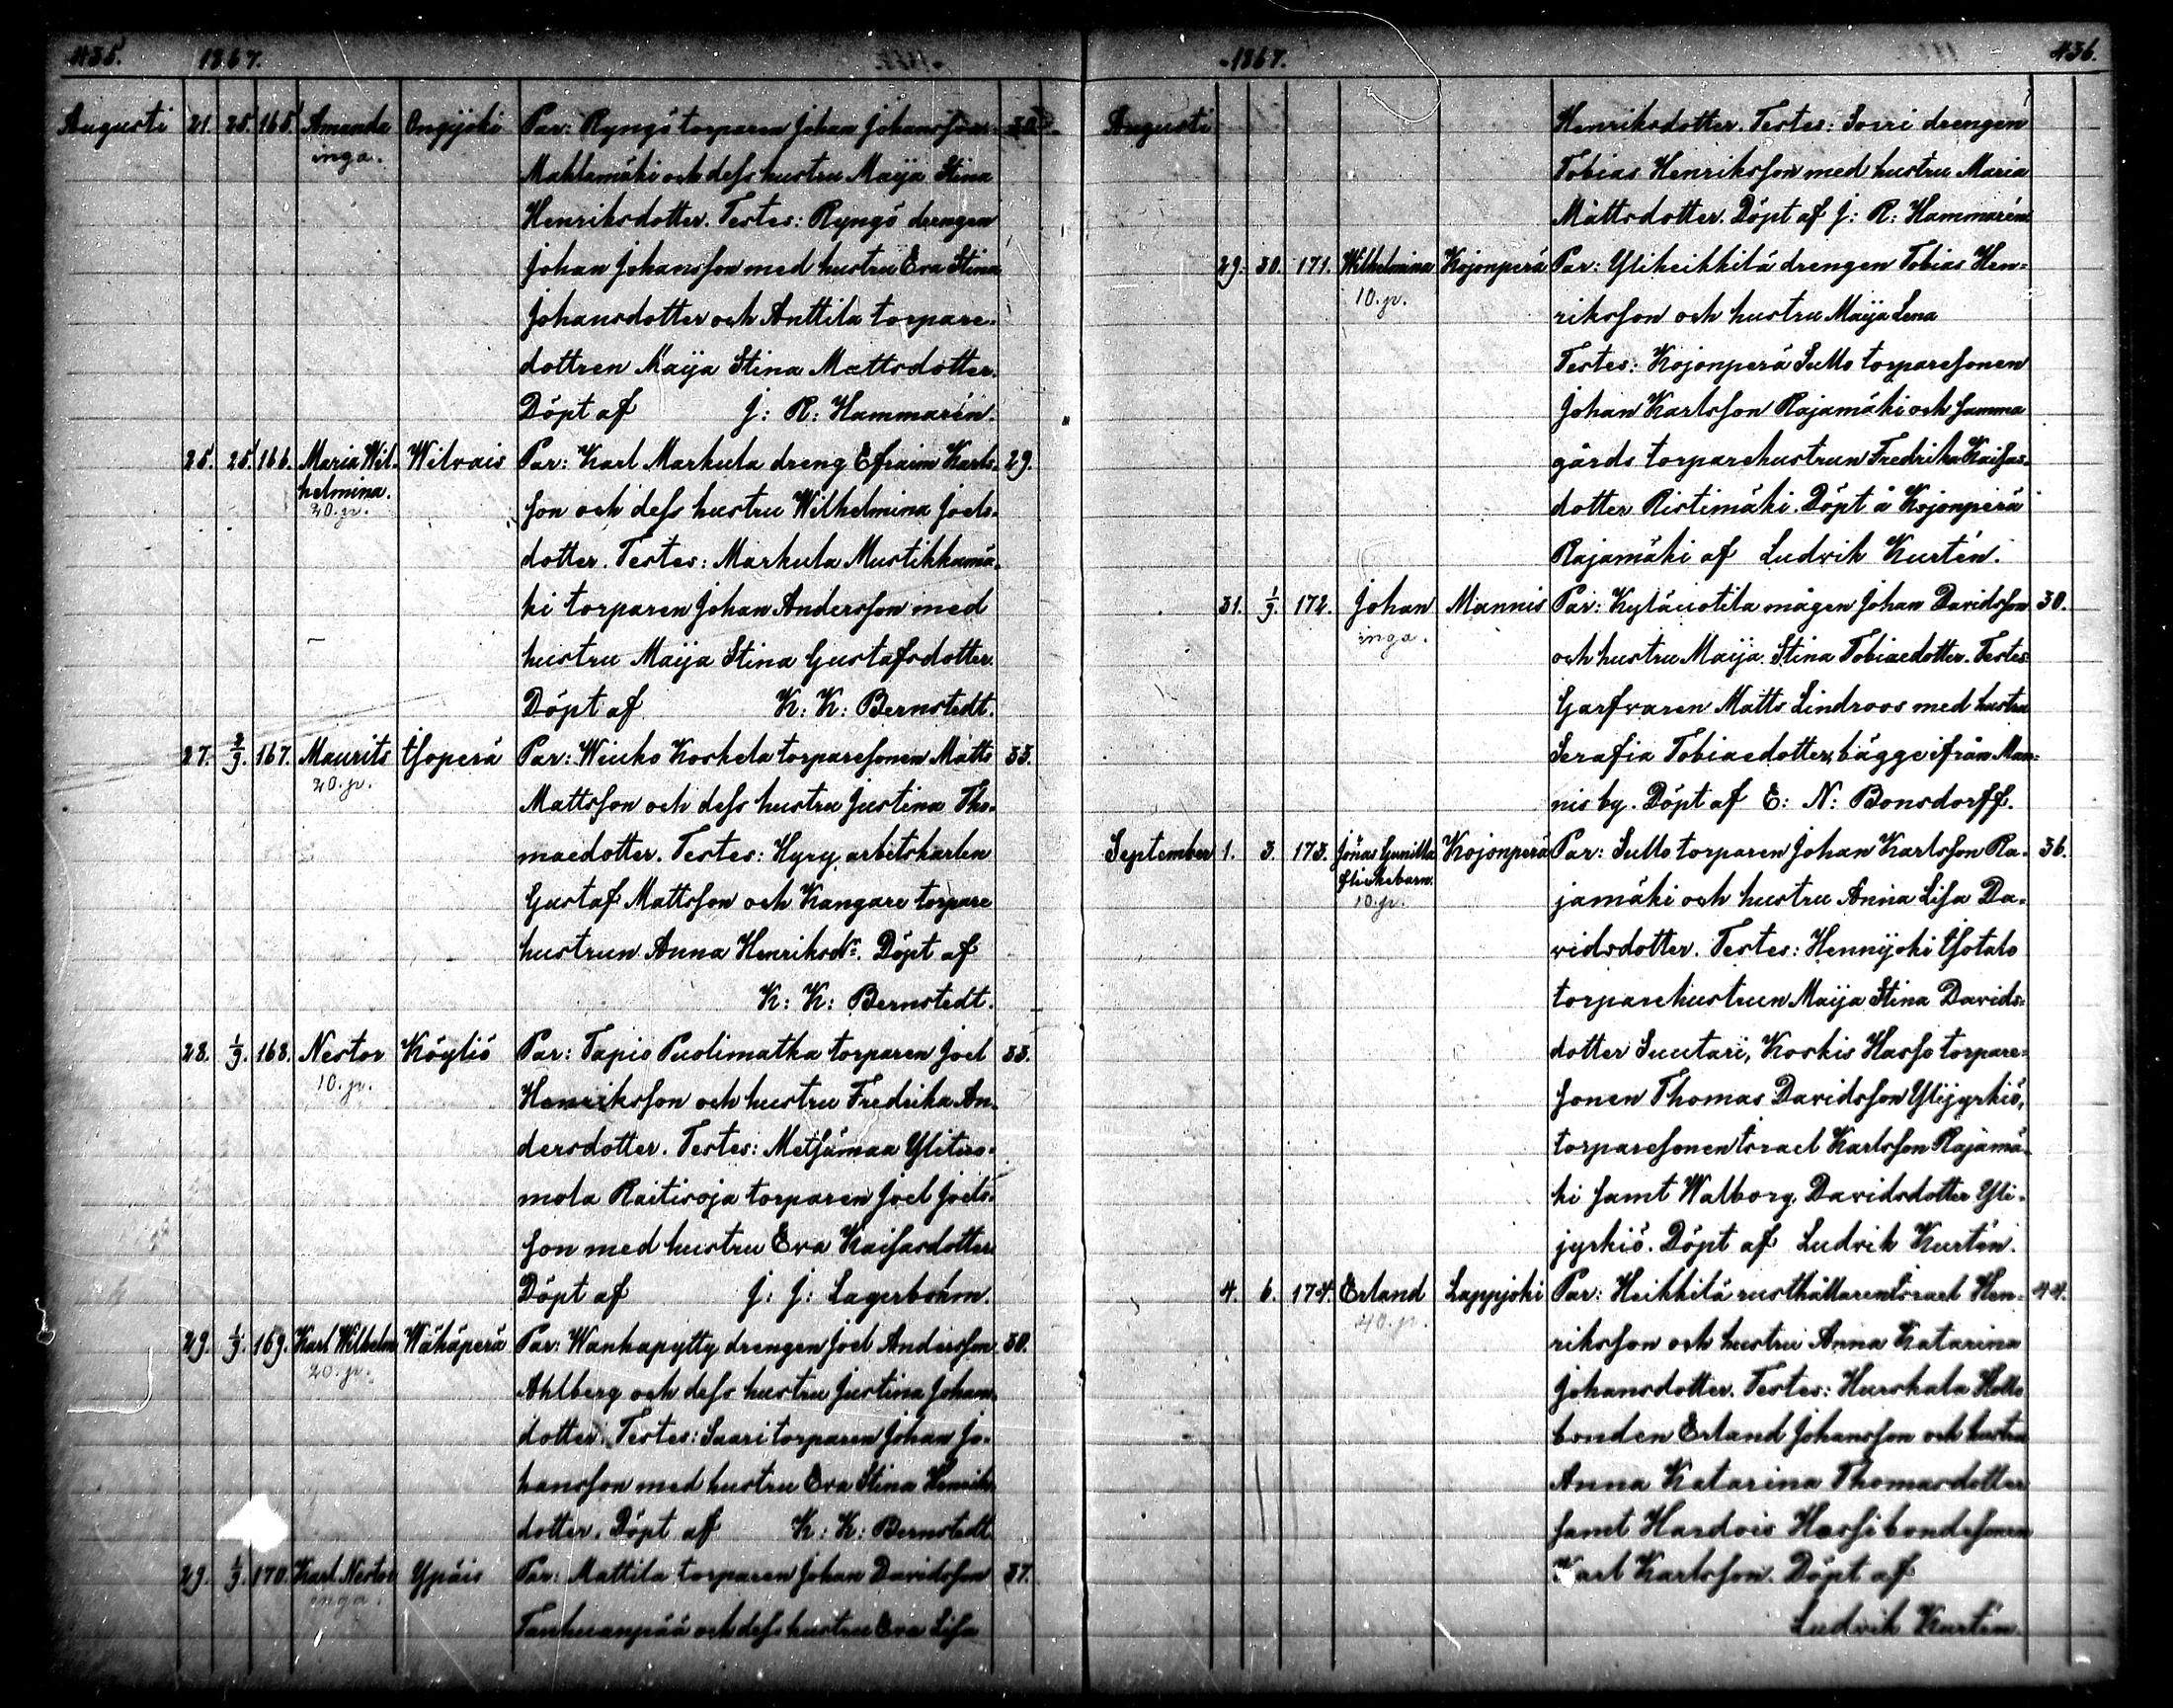 435. 1867.
Augusti 21. 25. 165. Amanda Ongijoki Par: Ryngö torparen Johan Johansson 30.
inga.
Mahlamäki och dess hustru Maija Stina
Henriksdotter. Testes: Ryngö drengen
Johan Johansson med hustru Eva Stina
Johansdotter och Anttila torpare-
dottren Maija Stina Mattsdotter.
Döpt af J: R: Hammarén.
25. 25. 166. Maria Wil- Wilvais Par: Karl Markula dreng Efraim Karls- 29.
helmina.
20. p.
son och dess hustru Wilhelmina Joels-
dotter. Testes: Markula Mustikkamä-
ki torparen Johan Andersson med
hustru Maija Stina Gustafsdotter.
Döpt af K: K: Bernstedt.
27. 2/9. 167. Maurits Isoperä Par: Wiuko Koskela torparesonen Matts 33.
20. p.
Mattsson och dess hustru Justina Tho-
maedotter. Testes: Hyry arbetskarlen
Gustaf Mattsson och Kangare torpare
hustrun Anna Henriksdr. Döpt af
K: K: Bernstedt.
28. 1/9. 168. Nestor Köyliö Par: Tapio Puolimatka torparen Joel 33.
10. p.
Henriksson och hustru Fredrika An-
dersdotter. Testes: Metsämaa Yliters-
mola Raitisoja torparen Joel Joels-
son med hustru Eva Kaisasdotter
Döpt af J: J: Lagerbohm.
29. 1/9. 169. Karl Wilhelm Wähäperä Par: Wanhapytty drengen Joel Andersson 30.
20. p.
Ahlberg och dess hustru Justina Johans-
dotter. Testes: Saari torparen Johan Jo-
hansson med hustru Eva Stina Henriks-
dotter. Döpt af K: K: Bernstedt.
29. 1/9. 170. Karl Nestor Ypäis Par: Mattila torparen Johan Davidsson 37.
inga.
Tanhuanpää och dess hustru Eva Lisa
1867. 436.
Augusti Henriksdotter. Testes: Sorri drengen
Tobias Henriksson med hustru Maria
Mattsdotter. Döpt af J: R: Hammarén
29. 30. 171. Wilhelmina Kojonperä Par: Yliheikkilä drengen Tobias Hen-
10. p.
riksson och hustru Maija Lena
Testes: Kojonperä Sullo torparesonen
Johan Karlsson Rajamäki och samma
gårds torparehustrun Fredrika Kaisas-
dotter Ristimäki. Döpt å Kojonperä
Rajamäki af Ludvik Kurtén.
31. 1/9. 172. Johan Mannis Par: Kyläuotila mågen Johan Davidsson 30.
inga.
och hustru Maija Stina Tobiaedotter. Testes
Garfvaren Matts Lindroos med hustru
Serafia Tobiaedotter, bägge ifrån Man-
nis by. Döpt af E: N: Bonsdorff.
September 1. 3. 173. Jonas Gunilla Kojonperä Par: Sullo torparen Johan Karlsson Ra- 36.
flickebarn.
10. p.
jamäki och hustru Anna Lisa Da-
vidsdotter. Testes: Hennijoki Isotalo
torparehustrun Maija Stina Davids-
dotter Suutari, Koskis Hasso torpare-
sonen Thomas Davidsson Ylijyrkiö,
torparesonen Israel Karlsson Rajamä-
ki samt Walborg Davidsdotter Yli-
jyrkiö. Döpt af Ludvik Kurtén.
4. 6. 174. Erland Lappjoki Par: Heikkilä rusthållaren Israel Hen- 44.
40. p.
riksson och hustru Anna Katarina
Johansdotter. Testes: Hurskala Hollo
bonden Erland Johansson och hustru
Anna Katarina Thomasdotter
samt Hardois Hassi bondesonen
Karl Karlsson. Döpt af
Ludvik Kurtén.